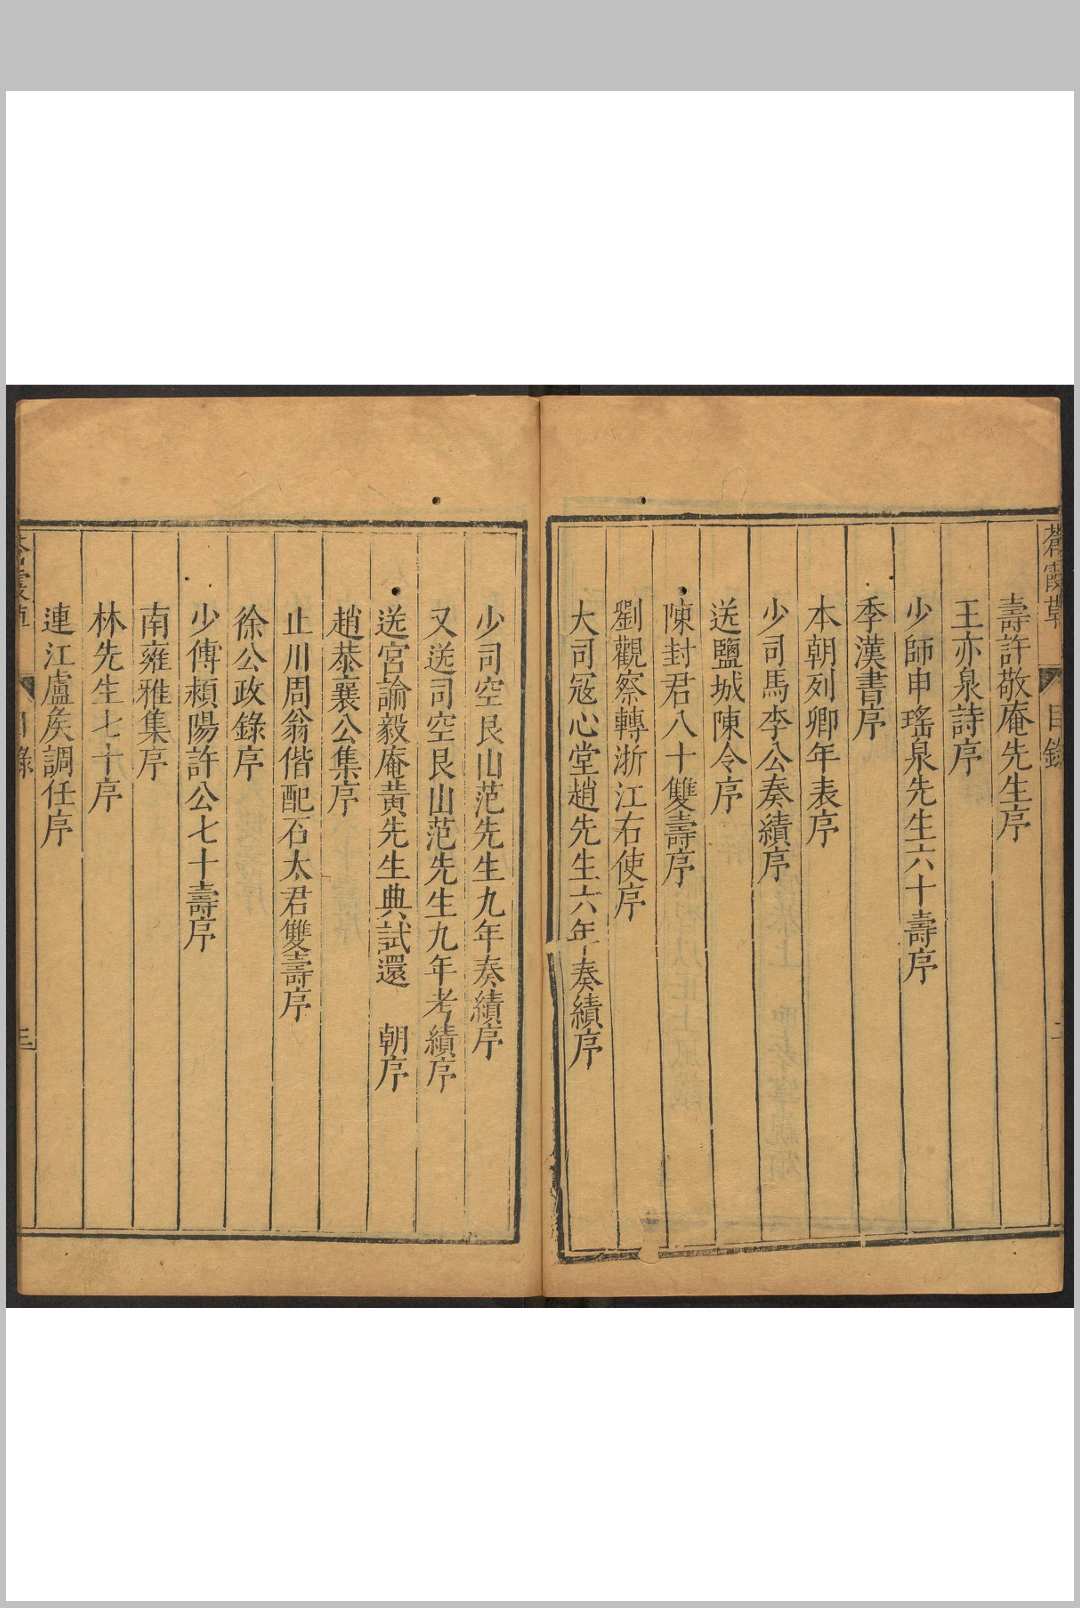 蒼霞草 目錄 二
壽許敬庵先生序
王亦泉詩序
少師申瑤泉先生六十壽序
季漢書序
本朝列卿年表序
少司馬李公奏績序
送鹽城陳令序
陳封君八十雙壽序
劉觀察轉浙江右使序
大司冦心堂趙先生六年奏績序
少司空艮山范先生九年奏績序
又送司空艮山范先生九年考績序
送宮諭毅庵黃先生典試還 朝序
趙恭襄公集序
止川周翁偕配石太君雙壽序
徐公政錄序
少傅潁陽許公七十壽序
南雍雅集序
林先生七十序
連江盧矦調任序
蒼霞草 目錄 三